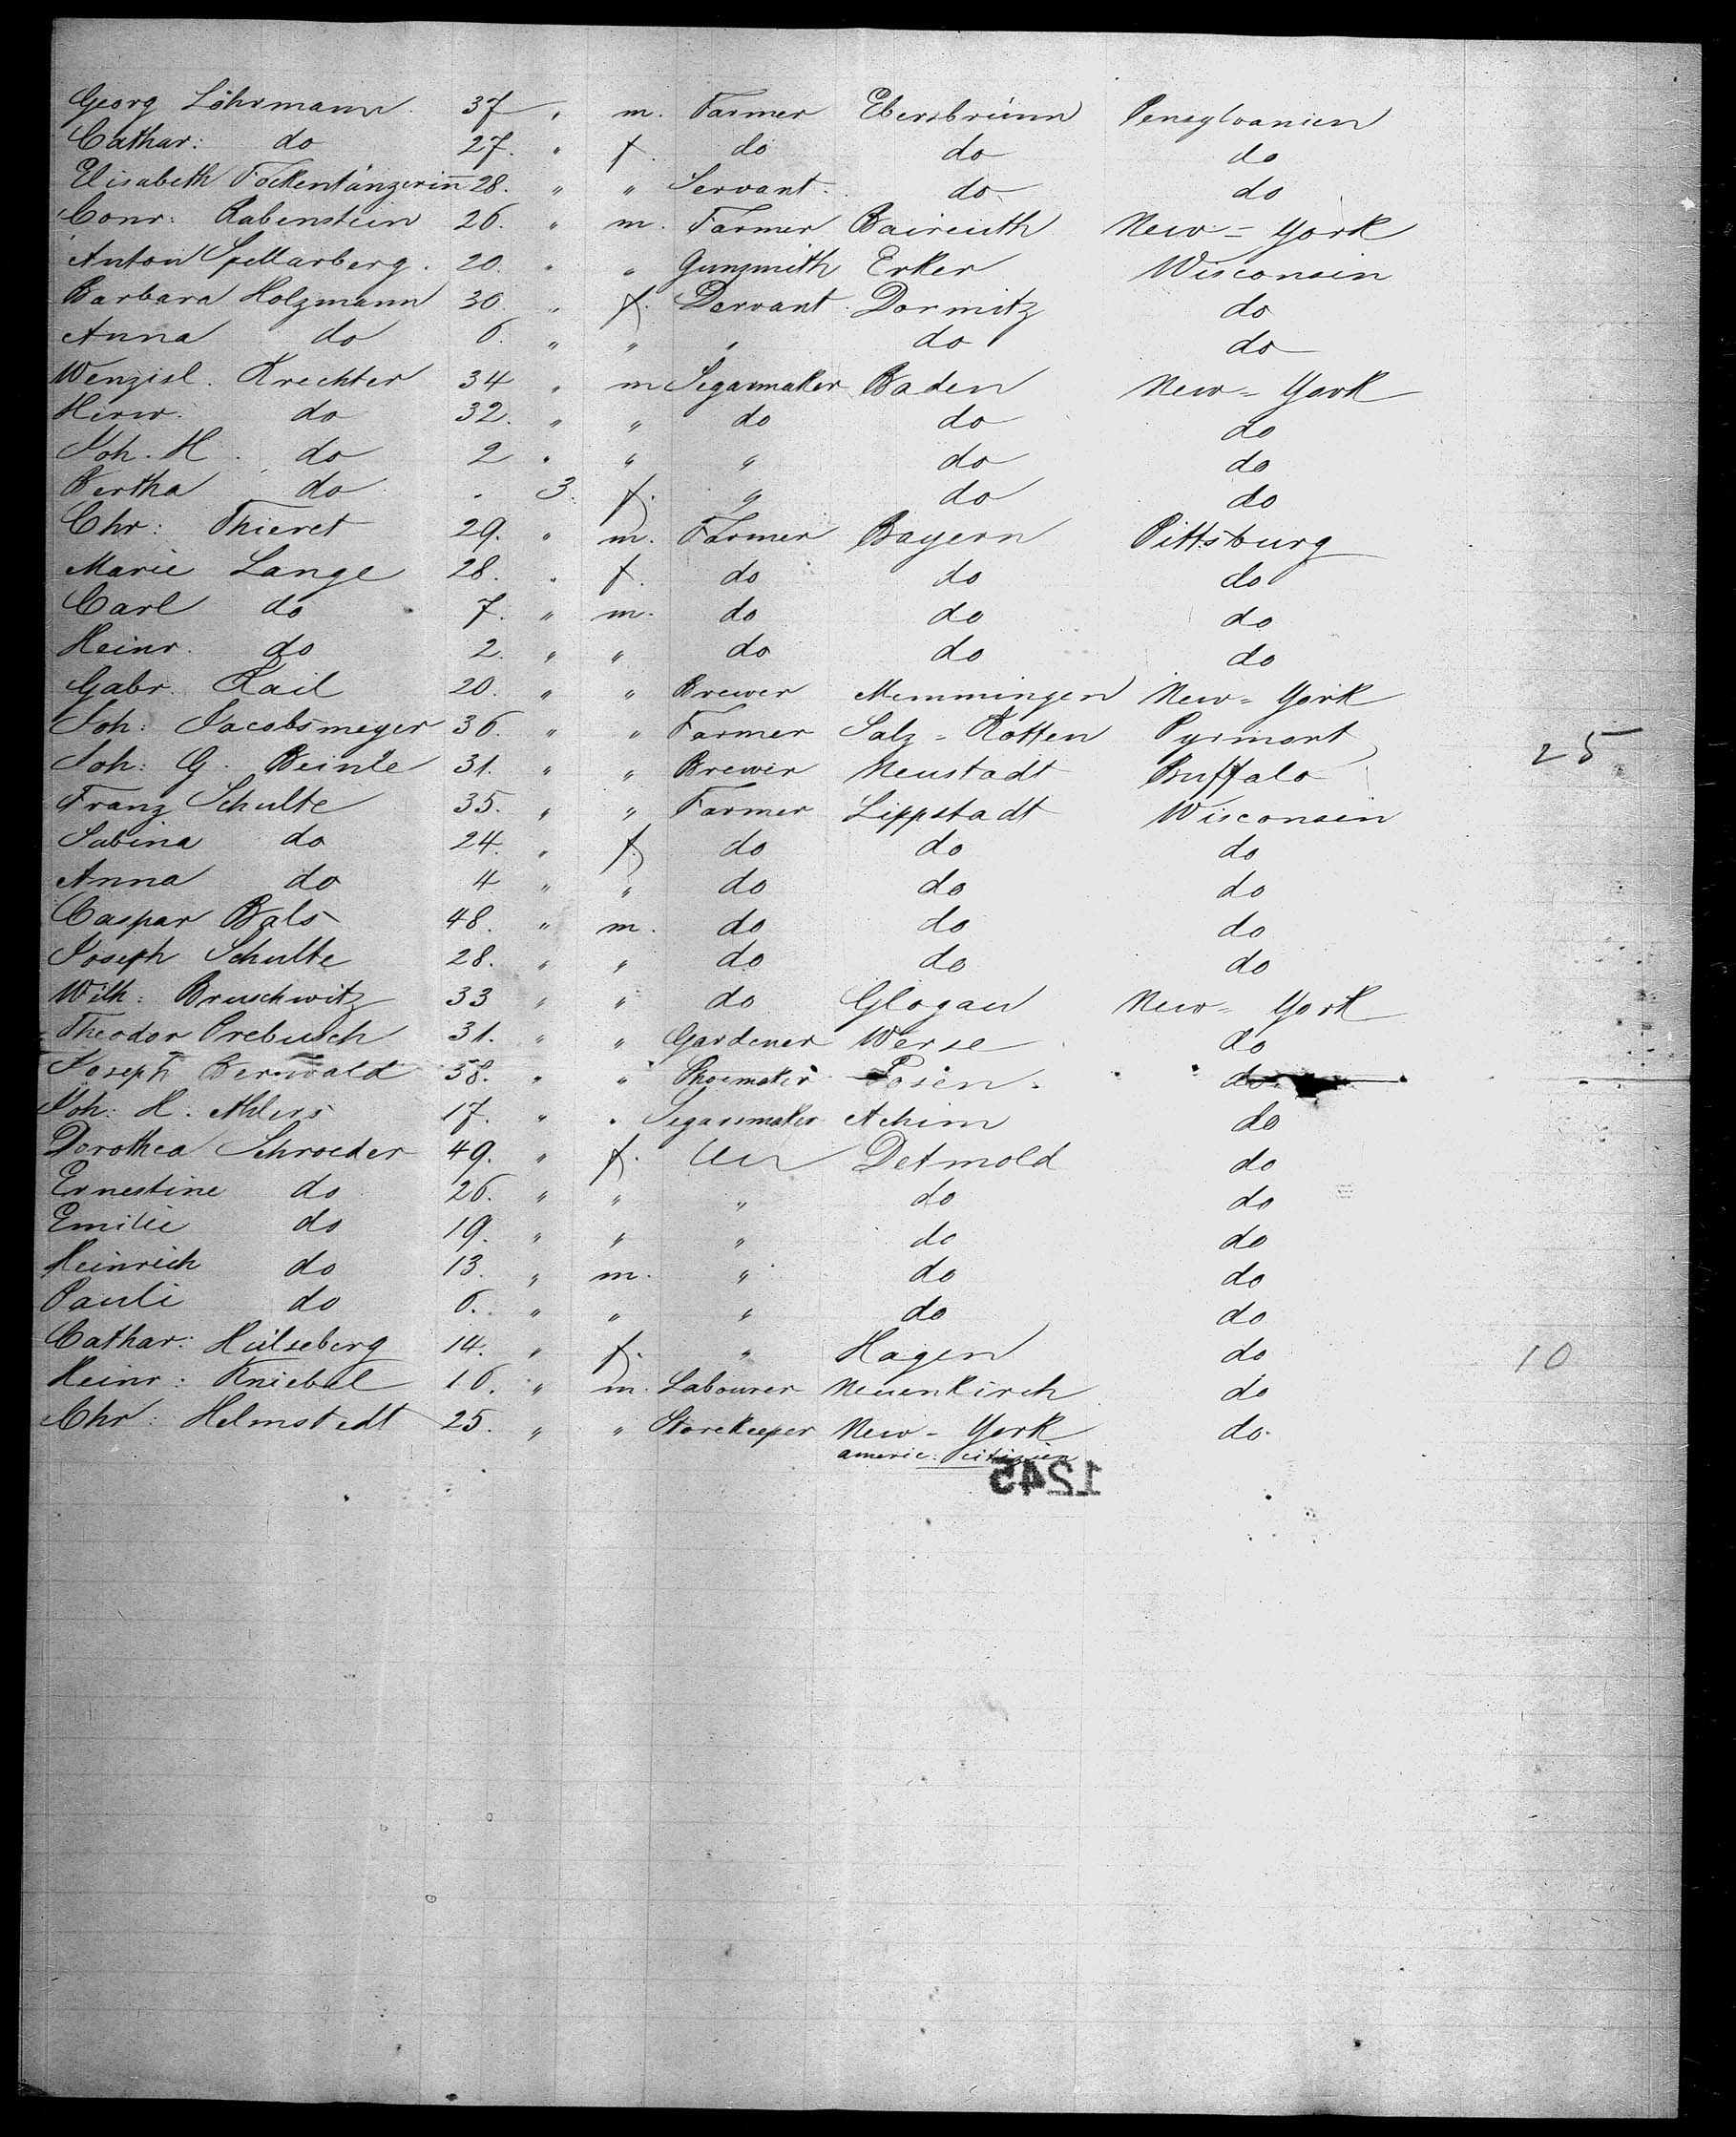 Georg Löhrmann. 37 " m. Farmer Ebersbrünn Pensylvanien
Cathar: do 27. " f. do do do
Elisabeth Fockentänzerin 28. " " Servant. do do
Conr: Rabenstein 26. " m. Farmer Baireuth New=York
Anton Spellarberg. 20. " " Gunsmith Erker Wisconsin
Barbara Holzmann 30 " f. Servant Dormitz do
Anna do 6. " " " do do
Wenzisl. Krechter 34 " m Segarmaker Baden New=York
Herw. do 32. " " do do do
Joh. H. do 2 " " " do do
Bertha do . 3. f. " do do
Chr: Thieret 29. " m. Farmer Bayern Pittsburg
Marie Lange 28. " f. do do do
Carl do 7. " m. do do do
Heinr. do 2. " " do do do
Gabr. Rail 20. " " Brewer Memmingen New=York
Joh: Jacobsmeyer 36. " " Farmer Salz=Kotten Pyrmont 25
Joh: G. Beinle 31. " " Brewer Neustadt Buffalo
Franz Schulte 35. " " Farmer Lippstadt Wisconsin
Sabina do 24. " f. do do do
Anna do 4 " " do do do
Caspar Bals 48. " m. do do do
Joseph Schulte 28. " " do do do
Wilh: Bruschwitz 33 " " do Glogau New=York
Theodor Prebusch 31. " " Gardener Werse do
Joseph Berwald 38. " " Shoemaker Posen. do
Joh: H. Ahlers 17. " . Segarmaker Achim do
Dorothea Schroeder 49. " f. Detmold do
Ernestine do 26. " " " do do
Emilie do 19. " " " do do
Heinrich do 13. " m. " do do
Pauli do 6. " " " do do
Cathar: Hülseberg 14. " f. " Hagen do 10
Heinr: Kniebel 16. " m. Labourer Neuenkirch do
Chr: Helmstedt 25. " " Storekeeper New-York do.
americ: citizien
1245